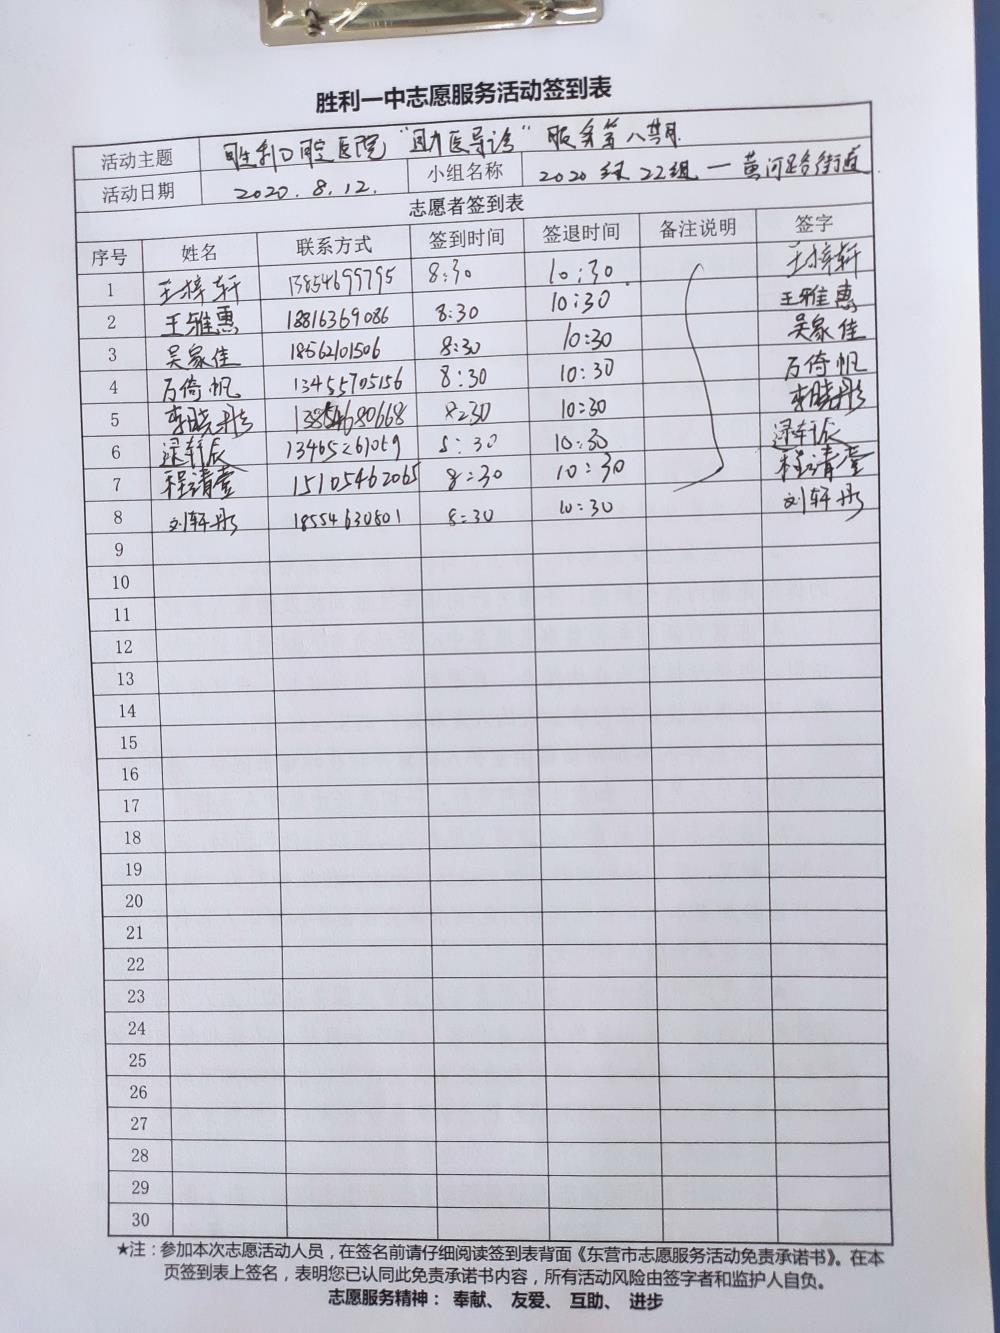 胜利一中志愿服务活动签到表
活动主题 胜利口腔医院“助医导诊”服务第八期
活动日期 2020.8.12. 小组名称 2020级22组一黄河路街道
志愿者签到表
序号 姓名 联系方式 签到时间 签退时间 备注说明 签字
1 王梓轩 13854699795 8:30 10:30 王梓轩
2 王雅惠 18816369086 8:30 10:30 王雅惠
3 吴家佳 18562101506 8:30 10:30 吴家佳
4 万倚帆 13455705156 8:30 10:30 万倚帆
5 李晓彤 13854680668 8:30 10:30 李晓彤
6 逯轩辰 13465261059 8:30 10:30 逯轩辰
7 程清萱 15105462065 8:30 10:30 程清萱
8 刘轩彤 18554630801 8:30 10:30 刘轩彤
9
10
11
12
13
14
15
16
17
18
19
20
21
22
23
24
25
26
27
28
29
30
★注：参加本次志愿活动人员，在签名前请仔细阅读签到表背面《东营市志愿服务活动免责承诺书》。在本
页签到表上签名，表明您已认同此免责承诺书内容，所有活动风险由签字者和监护人自负。
志愿服务精神： 奉献、 友爱、 互助、 进步